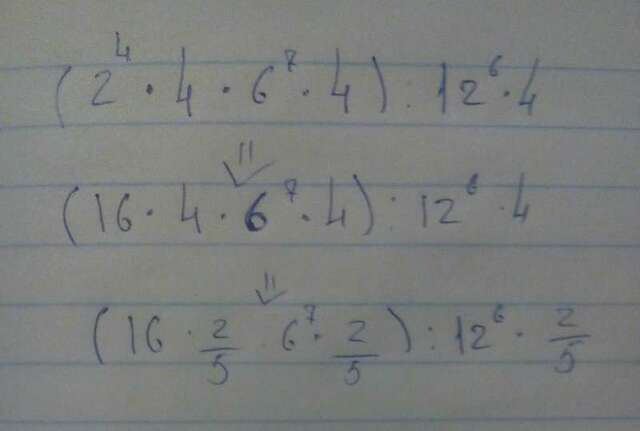 (2⁴ · 4 · 6⁷ · 4) : 12⁶ · 4
(16 · 4 · 6⁷ · 4) : 12⁶ · 4
(16 · 2/5 · 6⁷ · 2/5) : 12⁶ · 2/5